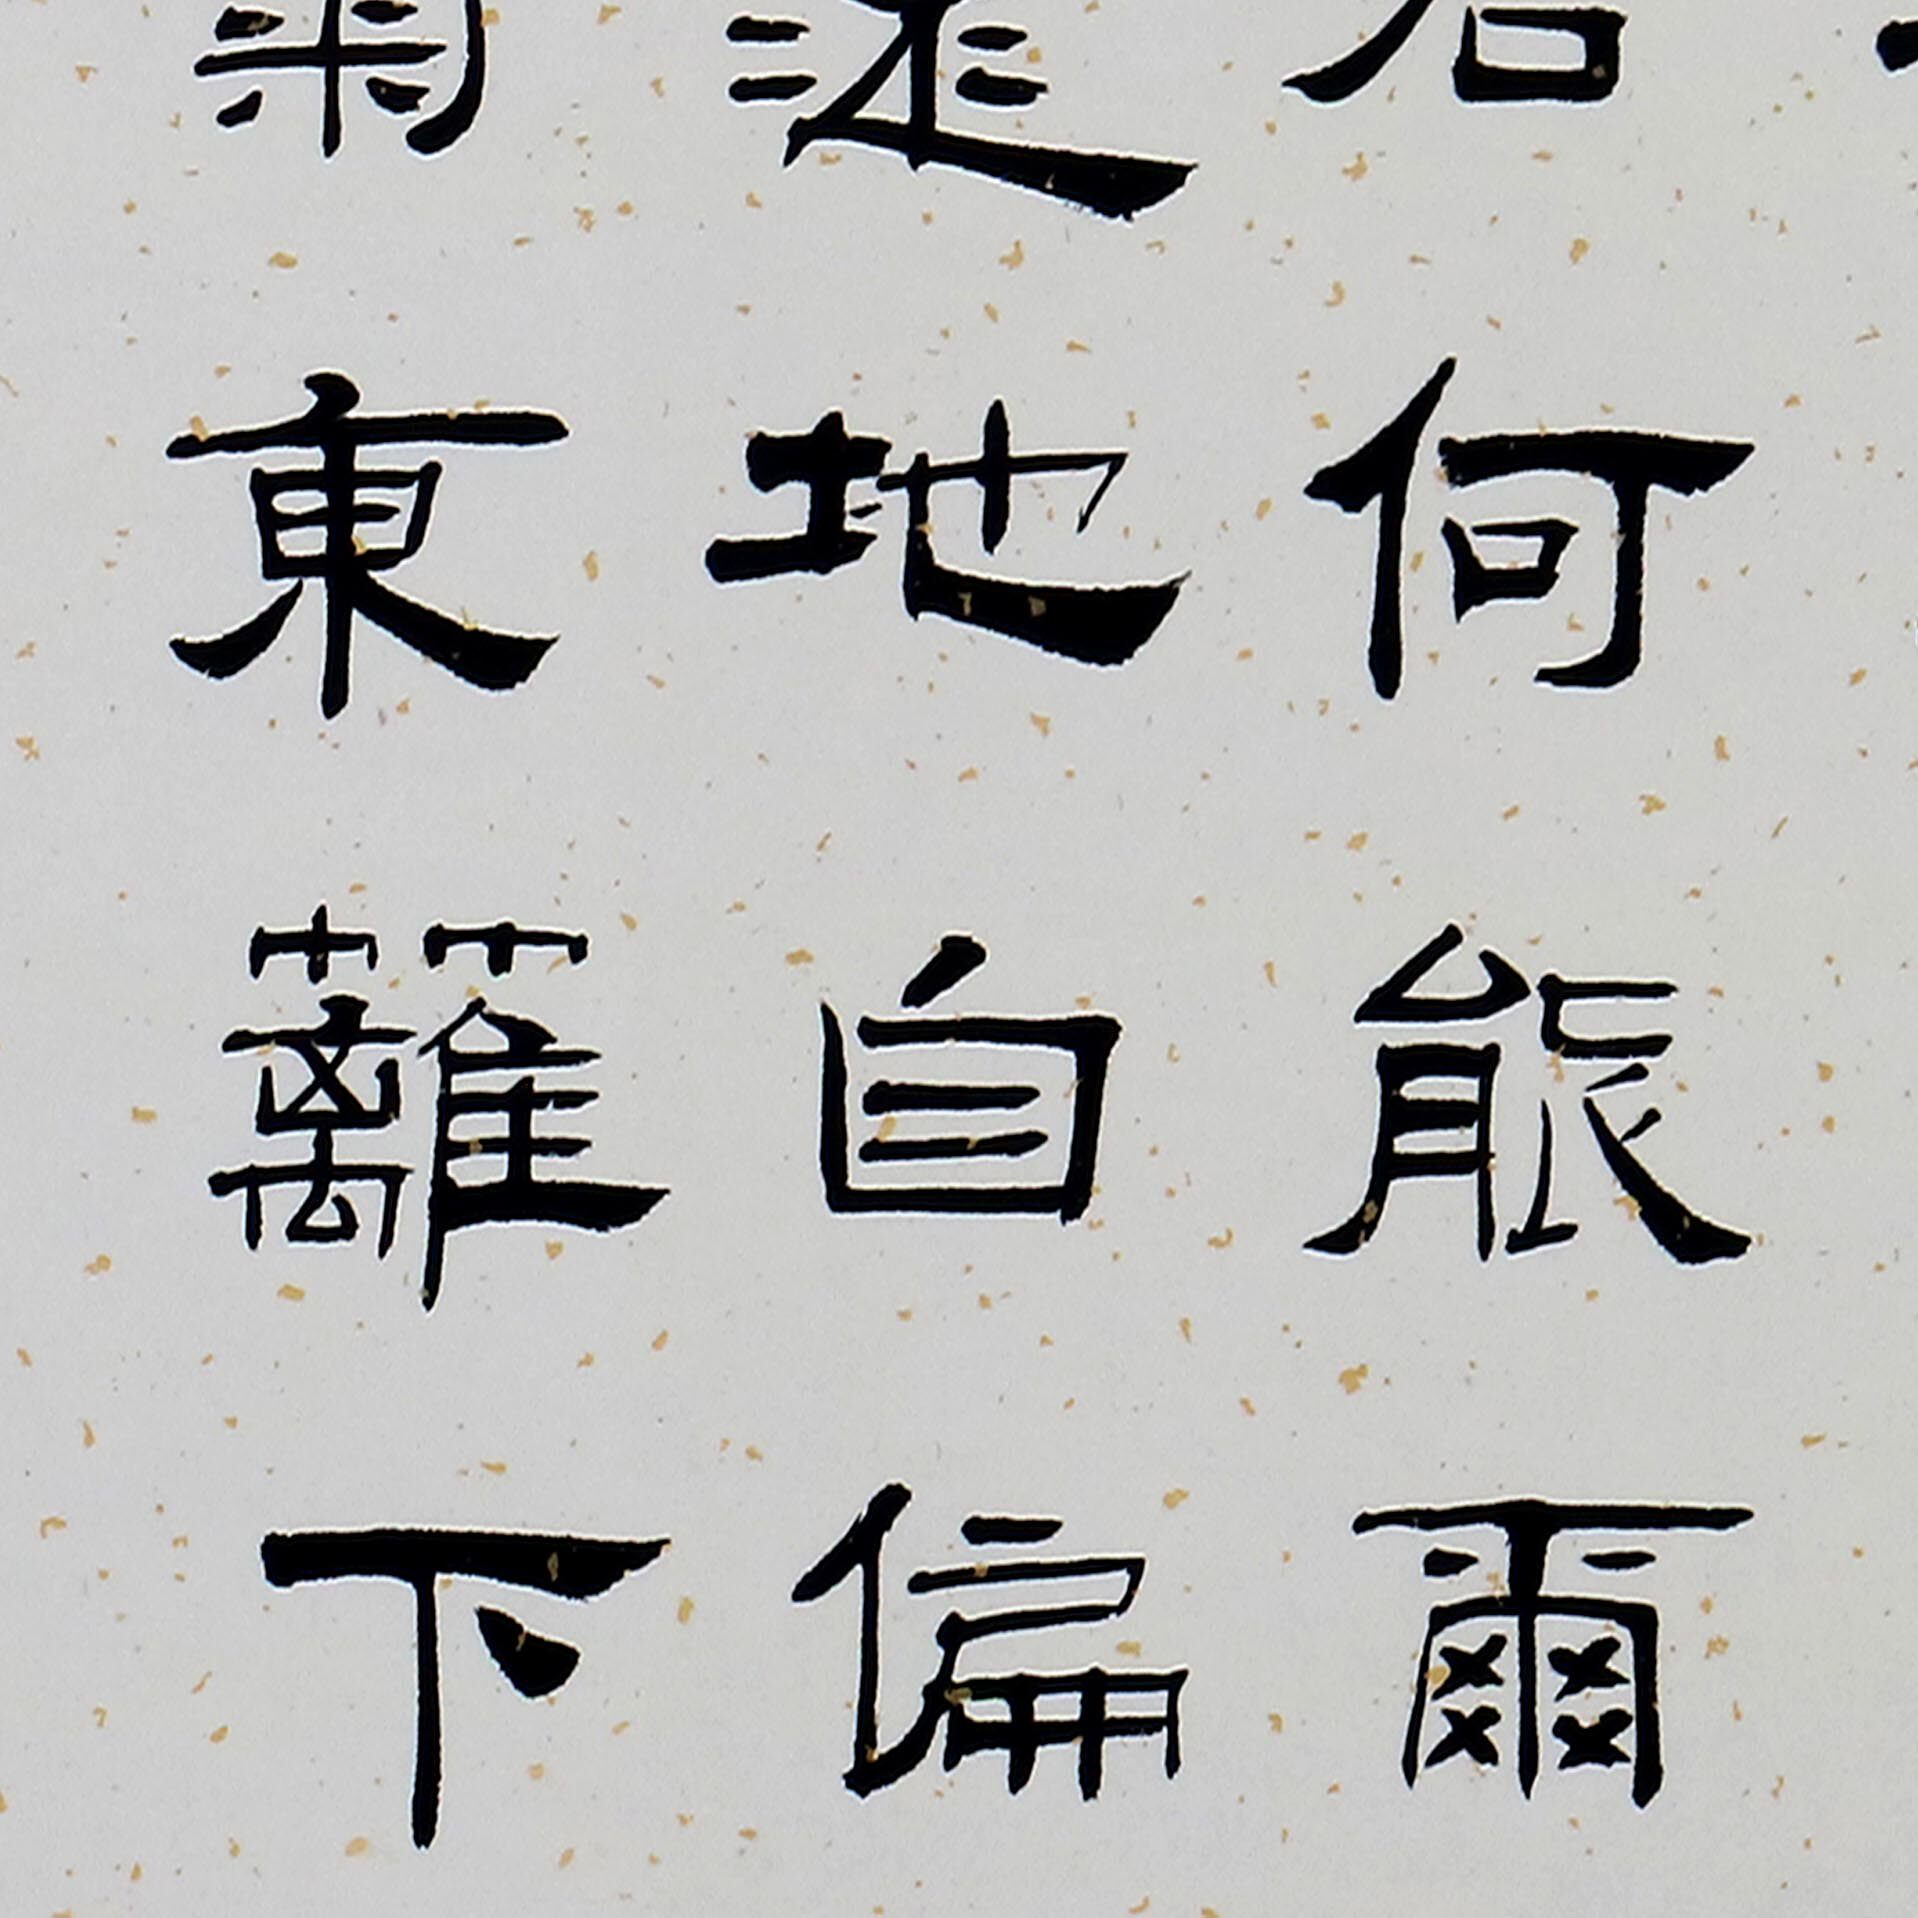 君何能爾
遠地自偏
菊東籬下